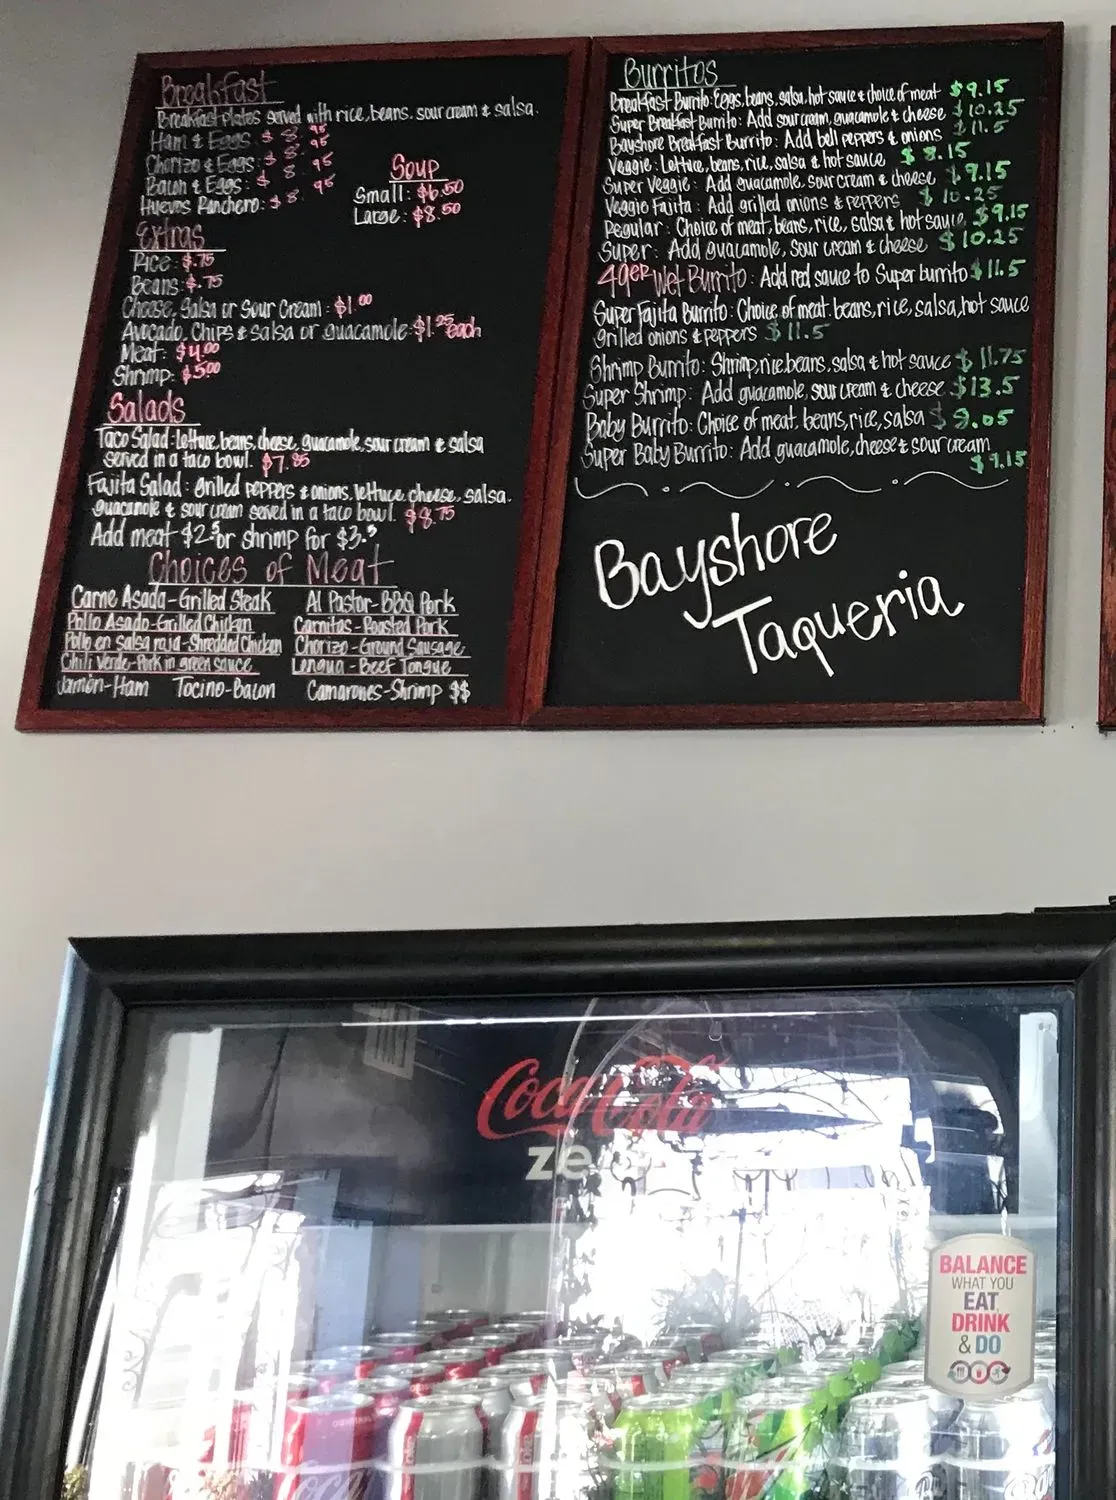 Breakfast
Breakfast Plates served with rice, beans, sour cream & salsa.
Ham & Eggs: $8.95
Chorizo & Eggs: $8.95
Bacon & Eggs: $8.95
Huevos Ranchero: $8.95
Soup
Small: $6.50
Large: $8.50
Extras
Rice: $.75
Beans: $.75
Cheese, Salsa or Sour Cream: $1.00
Avocado, Chips & salsa or guacamole: $1.25 each
Meat: $4.00
Shrimp: $5.00
Salads
Taco Salad: lettuce, beans, cheese, guacamole, sour cream & salsa
served in a taco bowl. $7.85
Fajita Salad: Grilled peppers & onions, lettuce, cheese, salsa.
guacamole & sour cream served in a taco bowl. $8.75
Add meat $2.5 or shrimp for $3.5
Choices of Meat
Carne Asada-Grilled Steak
Pollo Asado-Grilled Chicken
Pollo en salsa roja-Shredded Chicken
Chili Verde-Pork in green sauce
Jamón-Ham Tocino-Bacon
Al Pastor-BBQ Pork
Carnitas-Roasted Pork
Chorizo-Ground Sausage
Lengua-Beef Tongue
Camarones-Shrimp $$
Burritos
Breakfast Burrito: Eggs, beans, salsa, hot sauce & choice of meat $9.15
Super Breakfast Burrito: Add sour cream, guacamole & cheese $10.25
Bayshore Breakfast Burrito: Add bell peppers & onions $11.5
Veggie: Lettuce, beans, rice, salsa & hot sauce $8.15
Super Veggie: Add guacamole, sour cream & cheese $9.15
Veggie Fajita: Add grilled onions & peppers $10.25
Regular: Choice of meat, beans, rice, salsa & hot sauce $9.15
Super: Add guacamole, sour cream & cheese $10.25
49er Wet Burrito: Add red sauce to Super burrito $11.5
Super Fajita Burrito: Choice of meat, beans, rice, salsa, hot sauce
grilled onions & peppers $11.5
Shrimp Burrito: Shrimp, rice, beans, salsa & hot sauce $11.75
Super Shrimp: Add guacamole, sour cream & cheese $13.5
Baby Burrito: Choice of meat, beans, rice, salsa $9.05
Super Baby Burrito: Add guacamole, cheese & sour cream
$9.15
Bayshore
Taqueria
Coca-Cola
BALANCE
WHAT YOU
EAT
DRINK
& DO